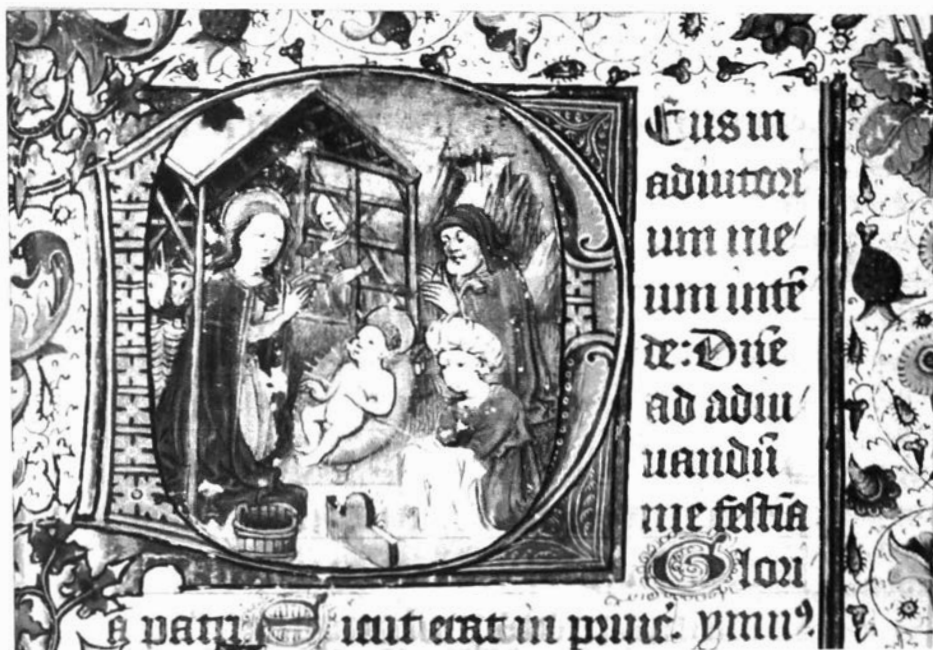 Eus in
adiutori
um me
um intē
de: Dn̄e
ad adiu
uandū
me festīa
Glori
a patri Sicut erat in princ. ymn⁹.